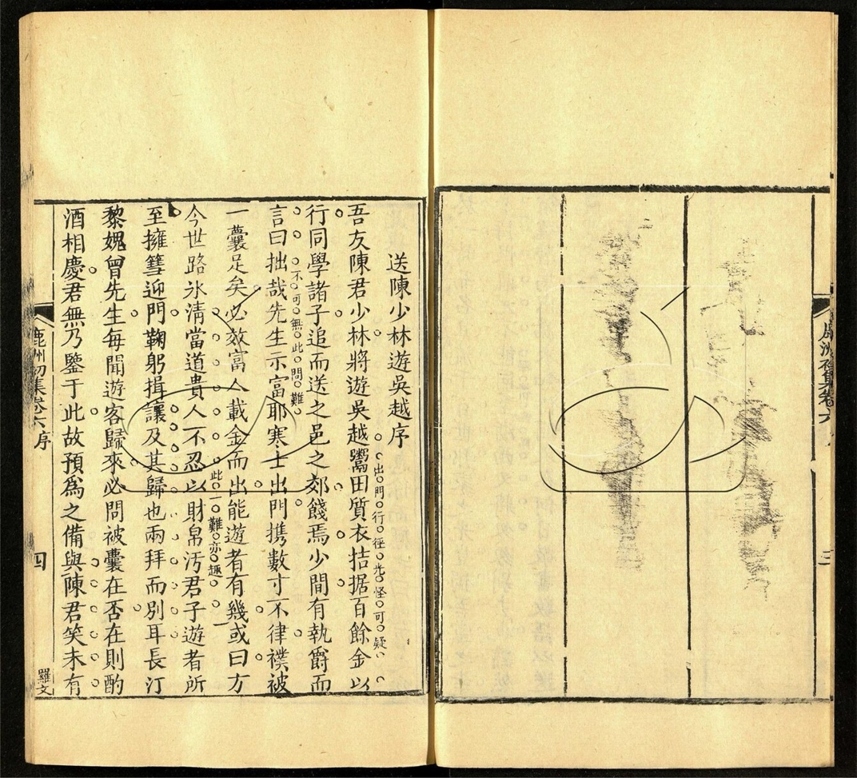 鹿洲初集卷六
三
送陳少林遊吳越序
吾友陳君少林將遊吳越鬻田質衣拮据百餘金以
出門行徑先怪可疑
行同學諸子追而送之邑之郊餞焉少間有執爵而
言曰拙哉先生示富耶寒士出門携數寸不律襆被
不可無此問難
一囊足矣必效富人載金而出能遊者有幾或曰方
今世路氷清當道貴人不忍以財帛汚君子遊者所
此一難亦趣
至擁篲迎門鞠躬揖讓及其歸也兩拜而別耳長汀
黎媿曾先生每聞遊客歸來必問被囊在否在則酌
酒相慶君無乃鑒于此故預為之備與陳君笑未有
鹿洲初集卷六序
四
羅文